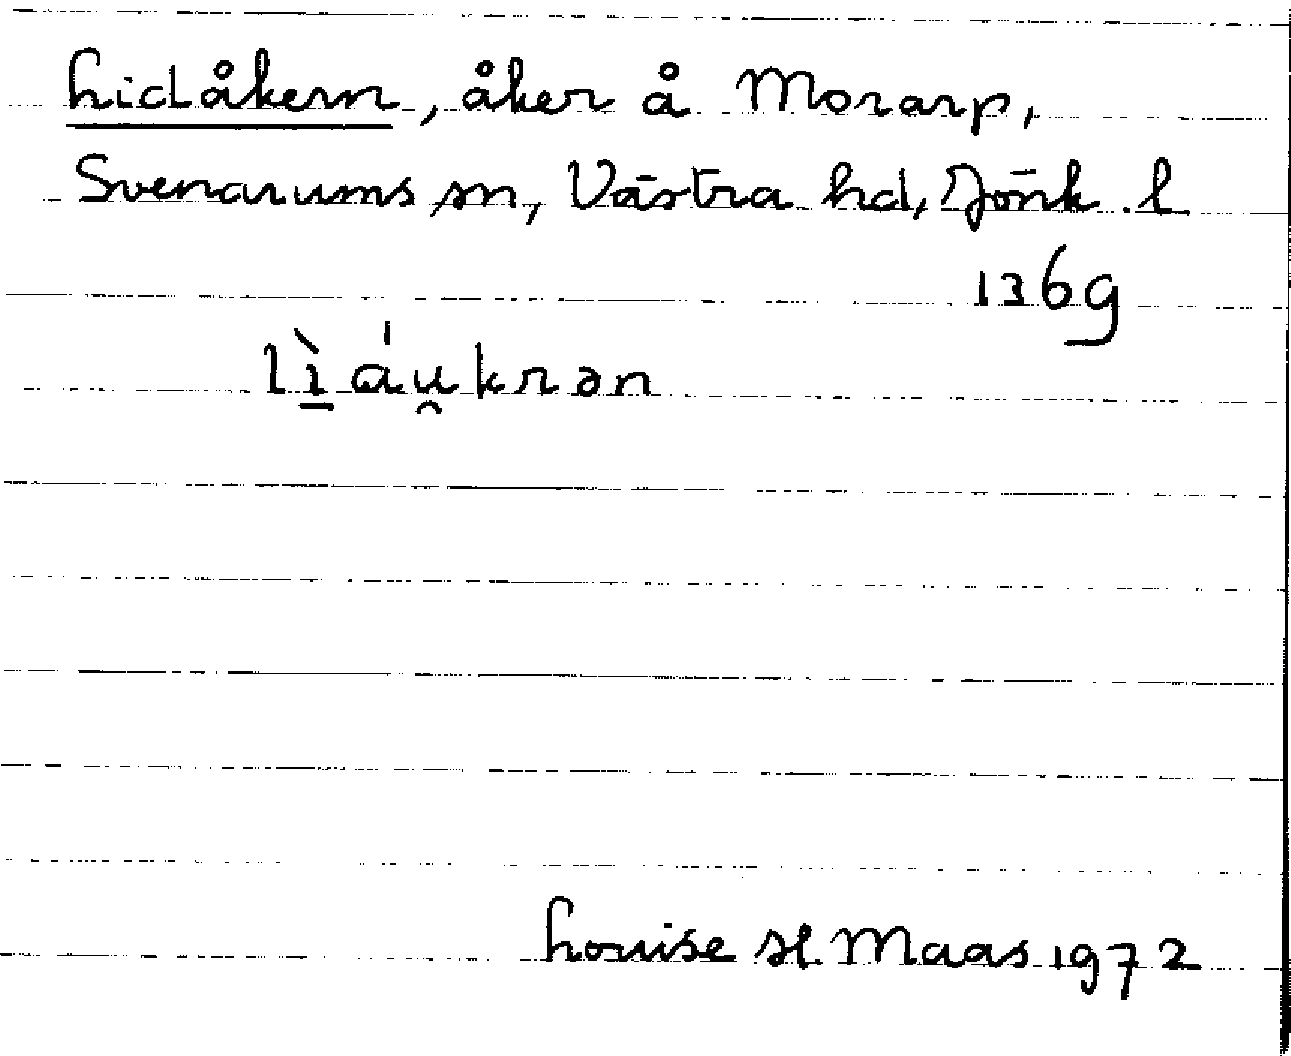 Lidåkern, åker å Morarp,
Svenarums sn, Västra hd, Jönk. l
136g
lì̠ áu̯krən
Louise H Maas 1972